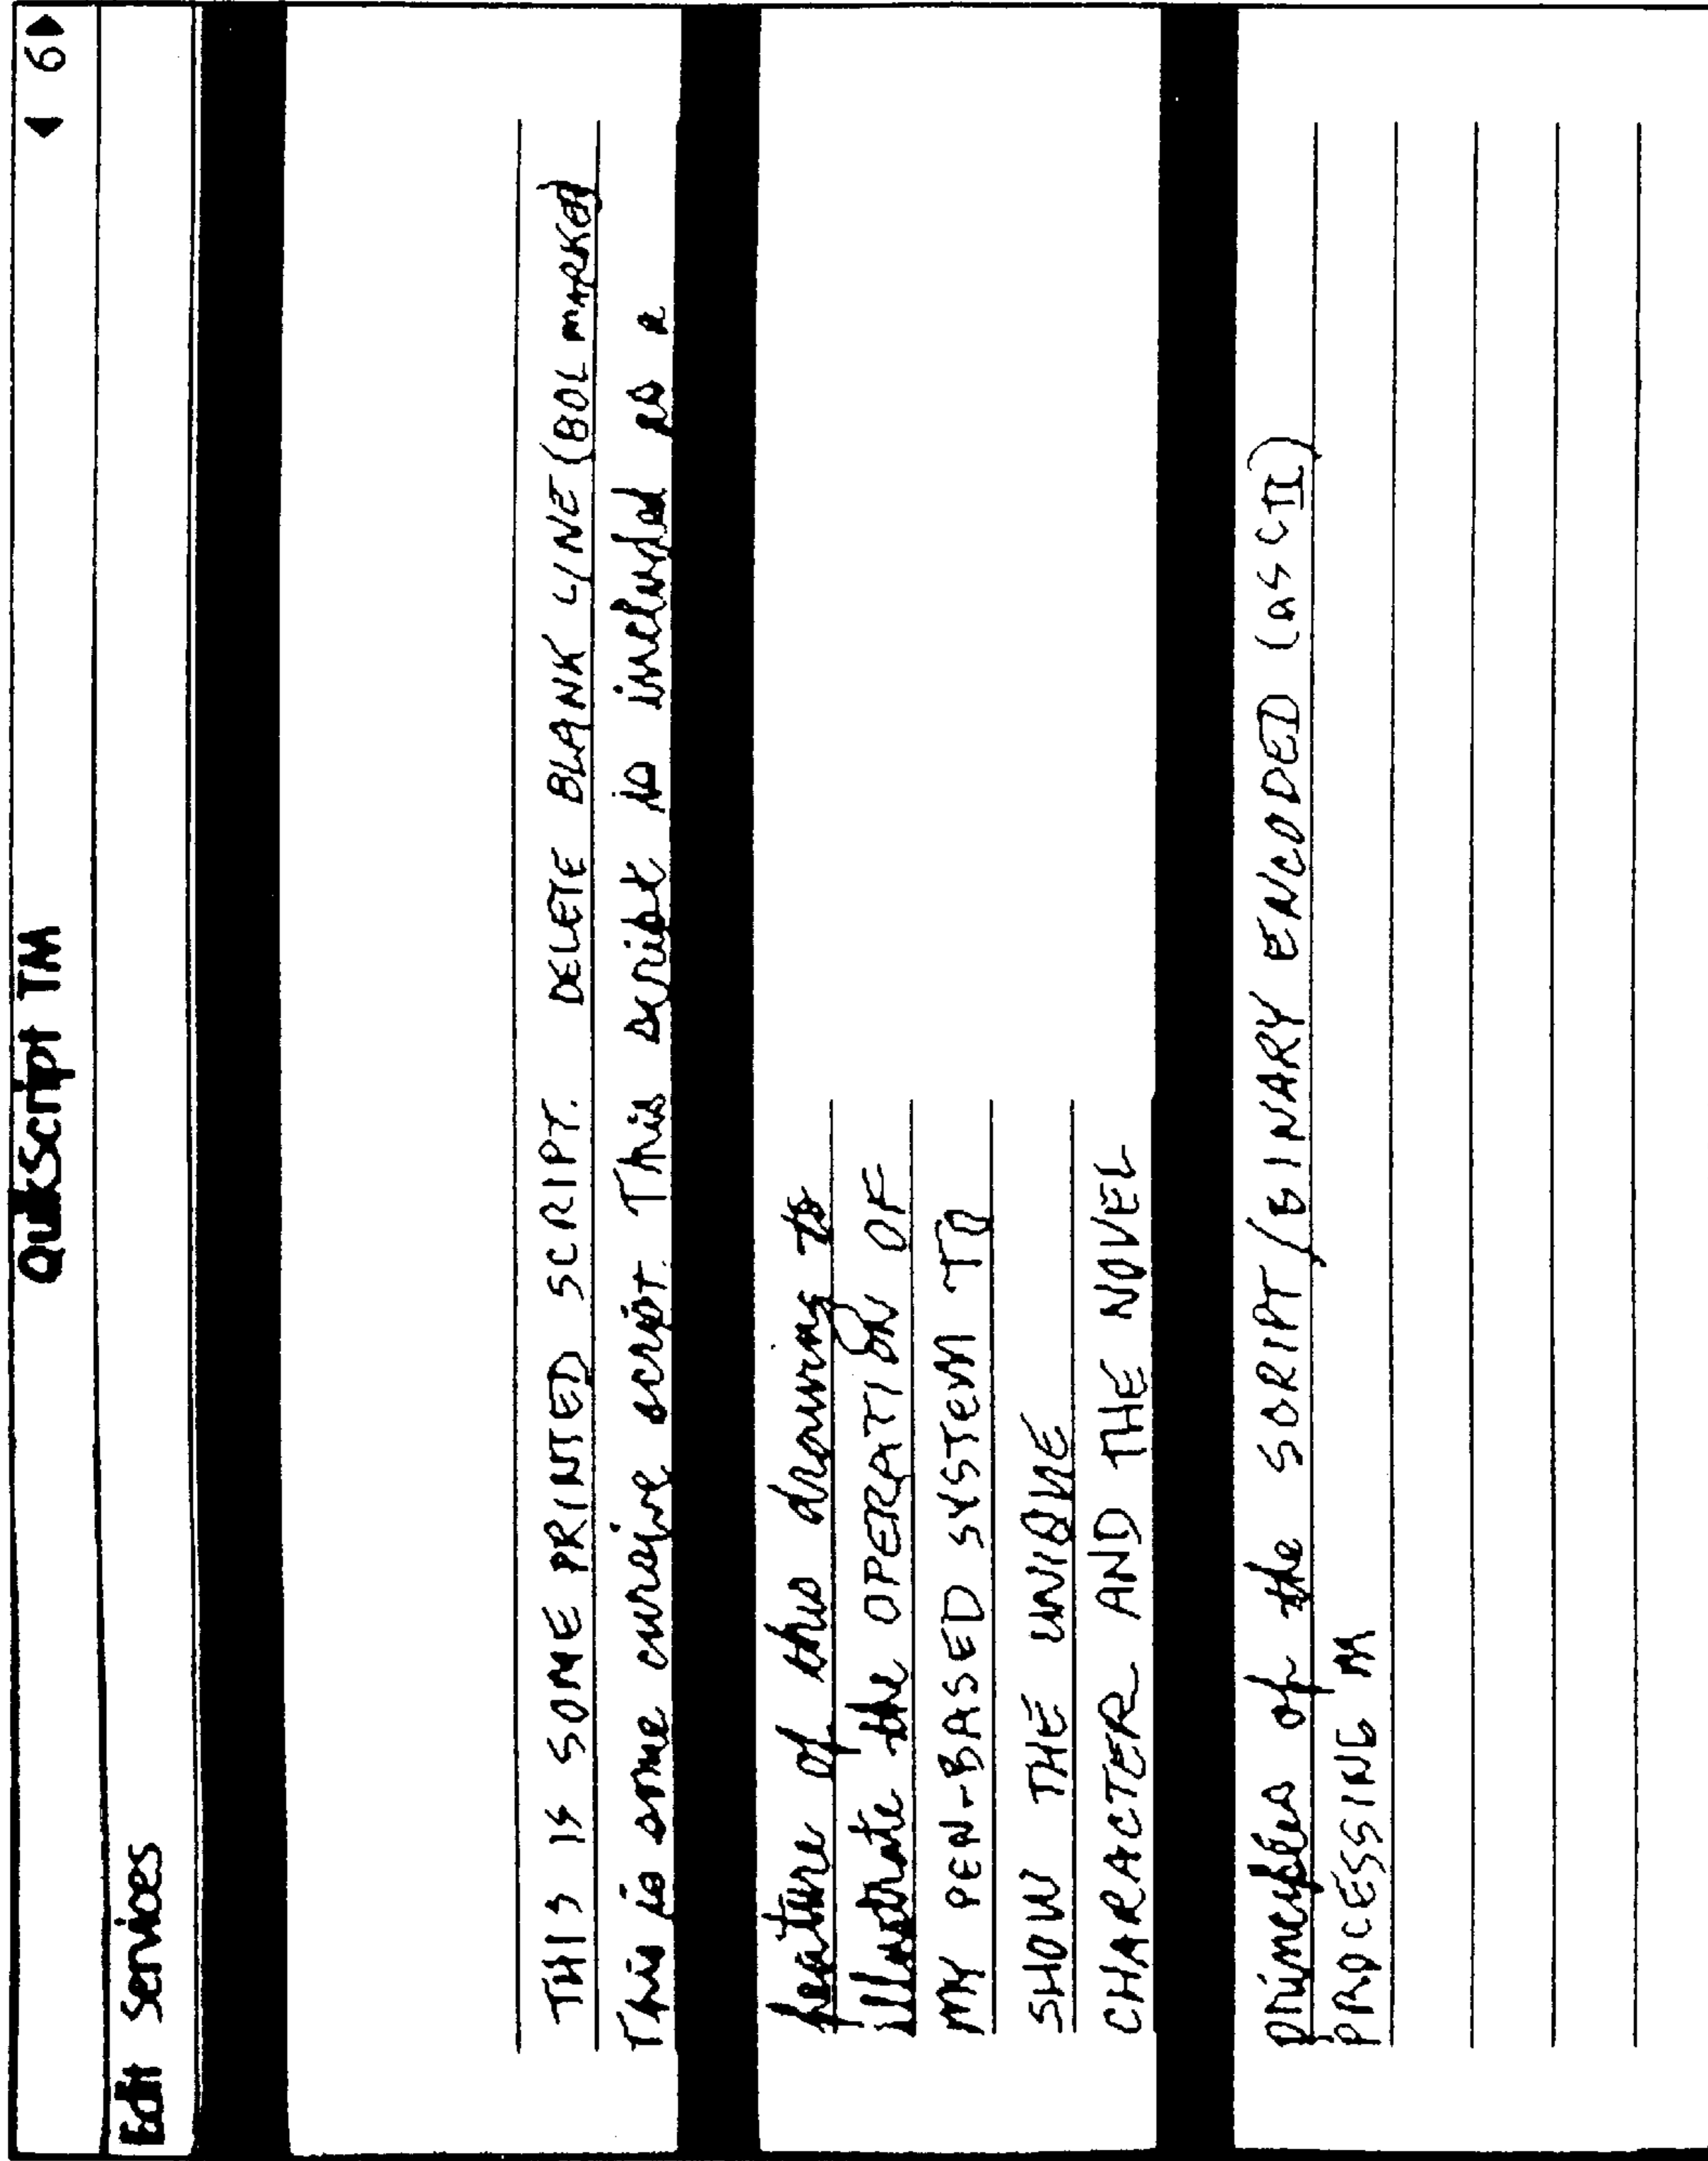 QuikScript TM ◀ 6 ▶
Edit Services
THIS IS SOME PRINTED SCRIPT. DELETE BLANK LINE (BOL MARKED)
This is some cursive script. This script is included as a
feature of this drawing to
illustrate the OPERATION OF
MY PEN-BASED SYSTEM TO
SHOW THE UNIQUE
CHARACTER AND THE NOVEL
principles of the SCRIPT/BINARY ENCODED (ASCII)
PROCESSING M